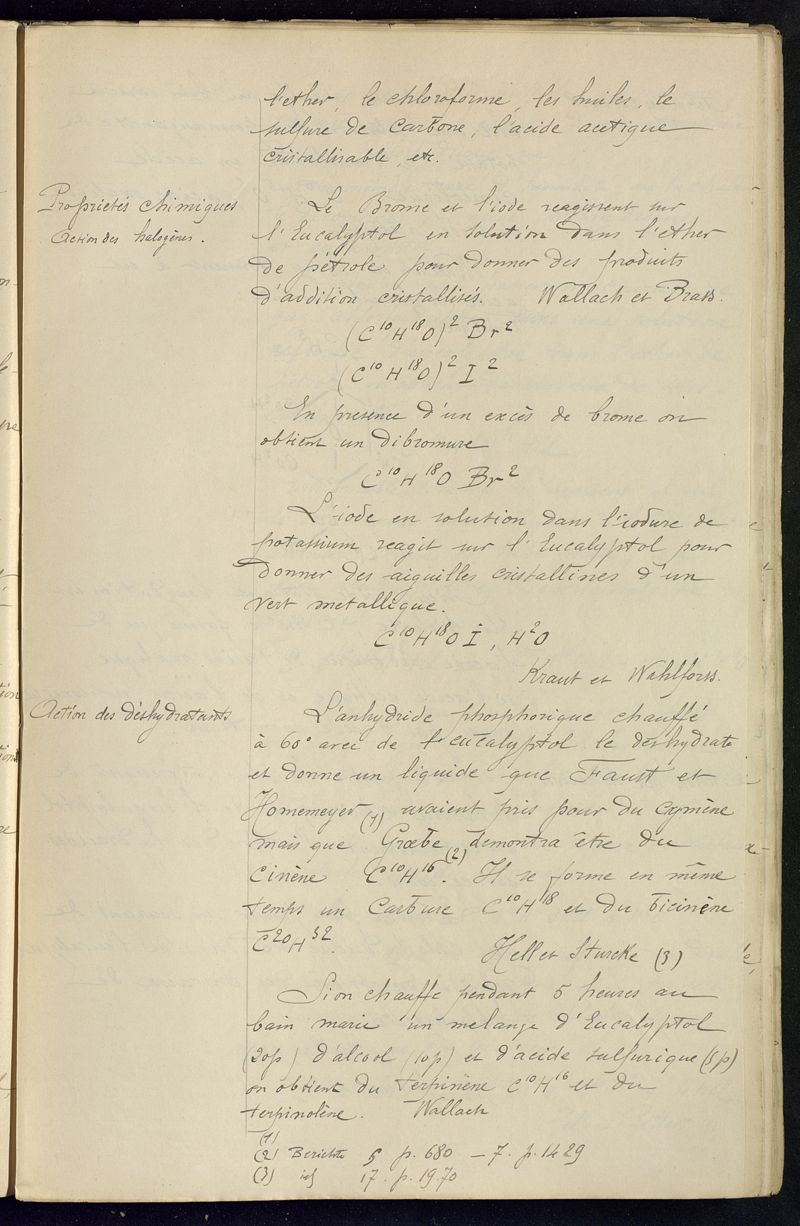 l'ether, le chloroforme, les huiles, le
sulfure de Carbone, l'acide acetique
cristallisable, etc.
Propriétés chimiques
Action des halogènes.
Le Brome et l'iode reagissent sur
l'Eucalyptol en solution dans l'ether
de pétrole pour donner des produits
d'addition cristallisés. Wallach et Brass.
(C¹⁰H¹⁸O)² Br²
(C¹⁰H¹⁸O)² I²
En presence d'un excès de brome on
obtient un dibromure
C¹⁰H¹⁸O Br²
L'iode en solution dans l'iodure de
potassium reagit sur l'Eucalyptol pour
donner des aiguilles cristallines d'un
vert metallique.
C¹⁰H¹⁸O I, H²O
Kraut et Wahlforss.
Action des déshydratants
L'anhydride phosphorique chauffé
à 60° avec de l'eucalyptol le déshydrate
et donne un liquide que Faust et
Homemeyer (1) avaient pris pour du cymène
mais que Græbe (2) démontra être du
Cinène C¹⁰H¹⁶. Il se forme en même
temps un Carbure C¹⁰H¹⁸ et du bicinène
C²⁰H³².
Hell et Sturcke (3)
Si on chauffe pendant 5 heures au
bain marie un melange d'Eucalyptol
(20p) d'alcool (10p) et d'acide sulfurique (5p)
on obtient du terpinène C¹⁰H¹⁶ et du
terpinolène. Wallach
(1)
(2) Berichte 5 p. 680 – 7. p. 1429
(3) id 17. p. 1970